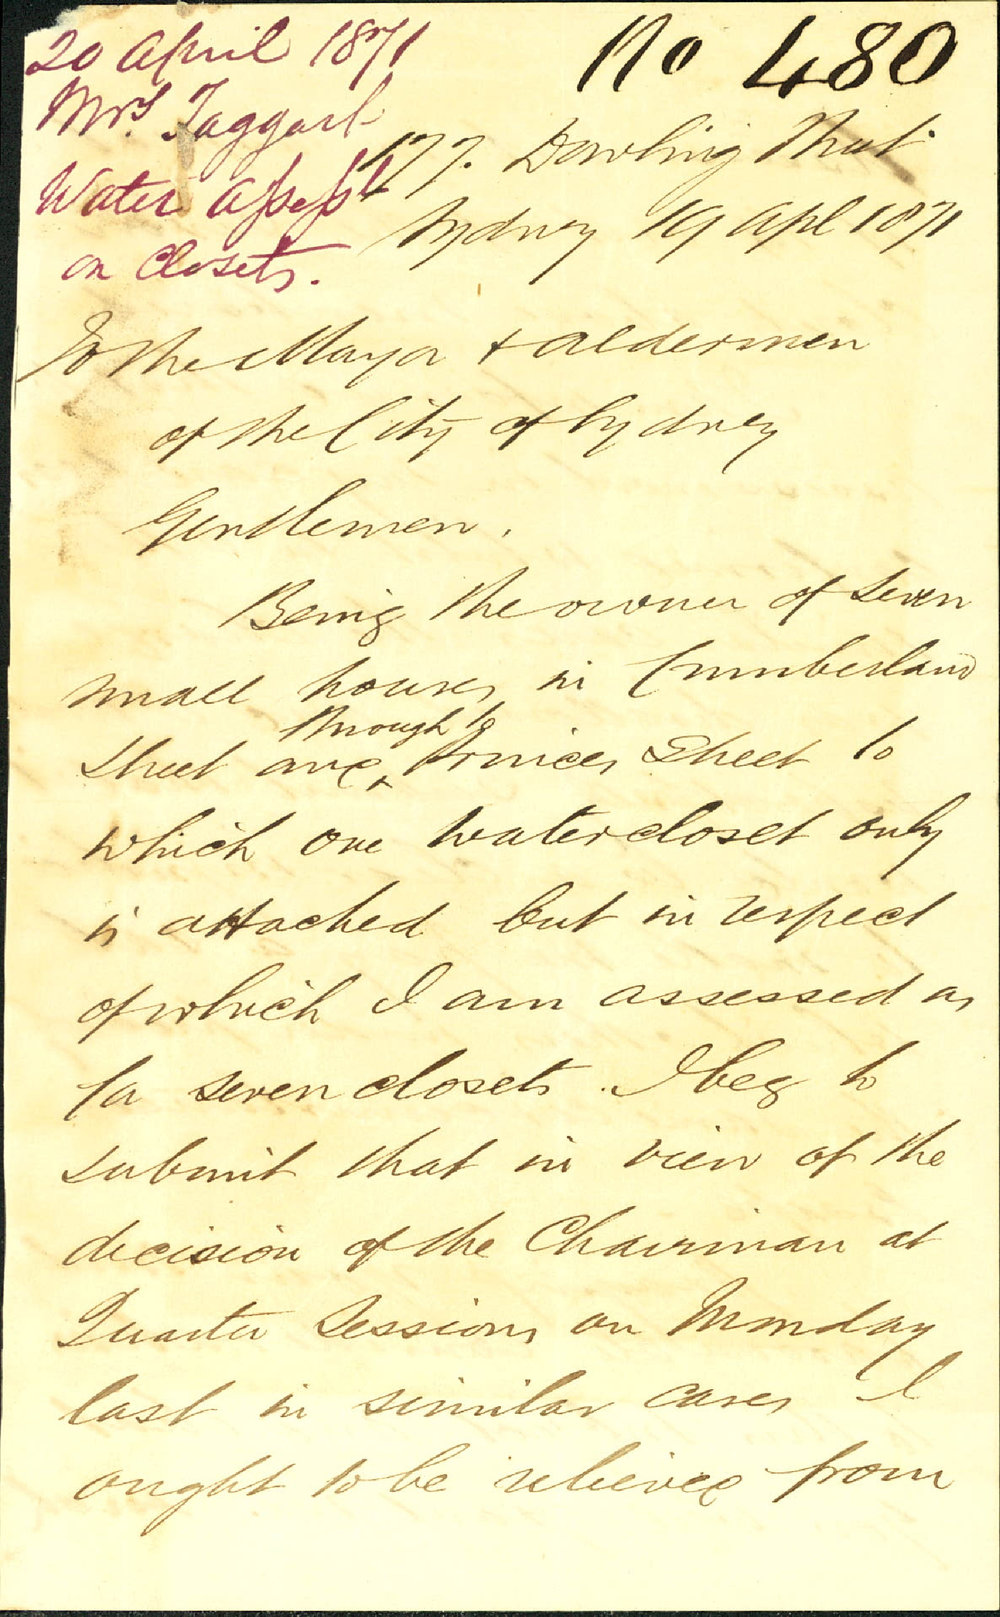 20 April 1871
No 480
Mrs. Taggart
Water Assesst
on Closets.
177. Dowling Street
Sydney 19 Apl 1871
To the Mayor & Aldermen
of the City of Sydney
Gentlemen.
Being the owner of seven
small houses in Cumberland
through to
street and Princes Street to
which one watercloset only
is attached but in respect
of which I am assessed as
for seven closets. I beg to
submit that in view of the
decision of the Chairman at
Quarter Sessions on Monday
last in similar cases I
ought to be relieved from